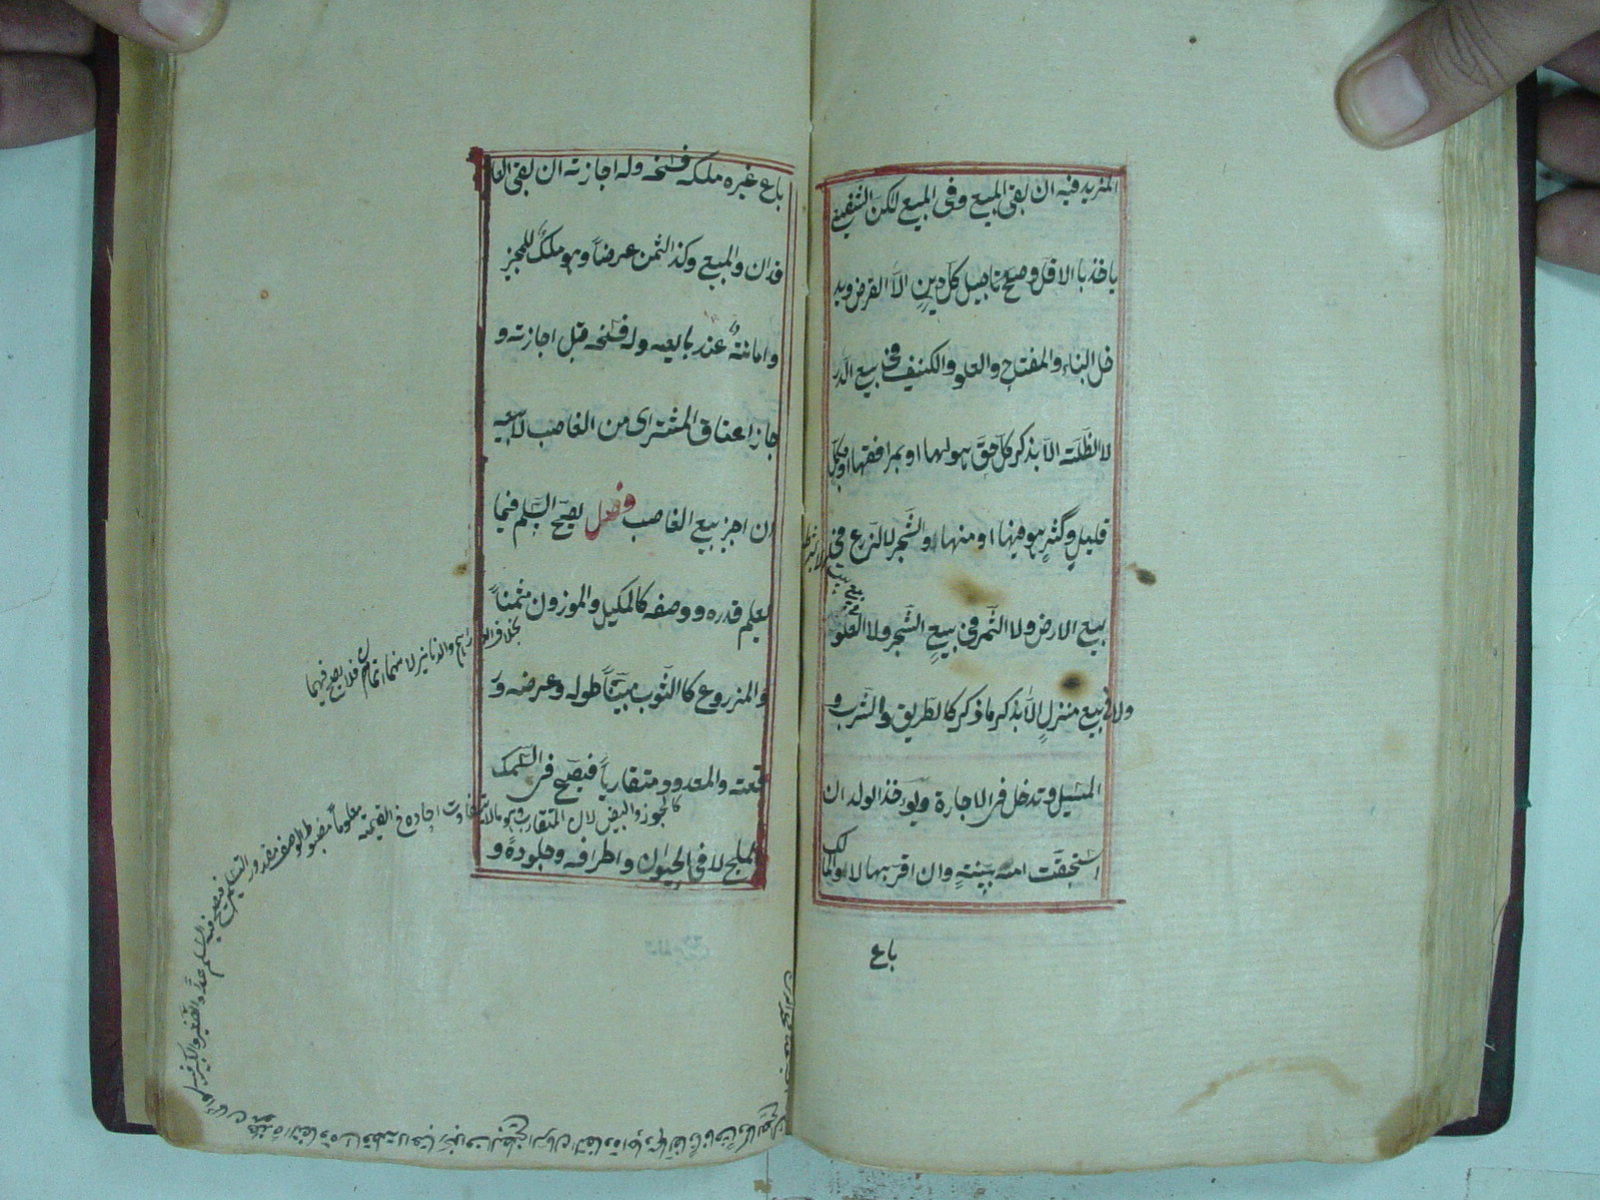 المزيد فيه ان بقى المبيع وفى المبيع لكن الشفيع
ياخذ با الاقل وصح تاجيل كل دين الا القرض ويد
خل البناء والمفتاح والعلو والكنيف فى بيع الدار
لا الظلة الا بذكر كل حق هو لها او بمرافقها او بكل
قليل وكثير هو فيها او منها والشجر لا الزرع فى
بيع الارض ولا الثمر فى بيع الشجر ولا العلو
ولا فى بيع منزل الا بذكر ما ذكر كالطريق والشرب و
المسيل وتدخل فى الاجارة ويؤخذ الولد ان
استحقت امه ببينة وان اقر بها لا ولو المالك
باع
باع غيره ملكه فسخه وله اجازته ان بقى العا
قدان والمبيع وكذ الثمن عرضاً وهو ملك للمجيز
وامانة عند بايعه وله فسخه قبل اجازته و
جاز اعتاق المشترى من الغاصب لا بيعه
ان اجيز بيع الغاصب فصل يصح السلم فيما
يعلم قدره ووصفه كالمكيل والموزون مثمناً
بخلاف الدراهم والدنانير لانهما اثمان فلا يصح فيهما
والمزروع كا الثوب مبيناً طوله وعرضه ور
قعته والمعدود متقارباً فيصح فى السمك
كالجوز والبيض لان المتقارب هو مالا يتفاوت احاده فى القيمة معلوماً مضبوط الوصف مقدور التسليم فيصح فيه السلم عدداً والصغير والكبير فيه
المليح لا فى الحيوان واطرافه وجلوده و